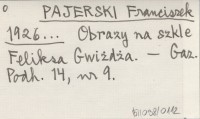 PAJERSKI Franciszek
1926... Obrazy na szkle
Feliksa Gwiżdża. — Gaz.
Podh. 14, nr 9.